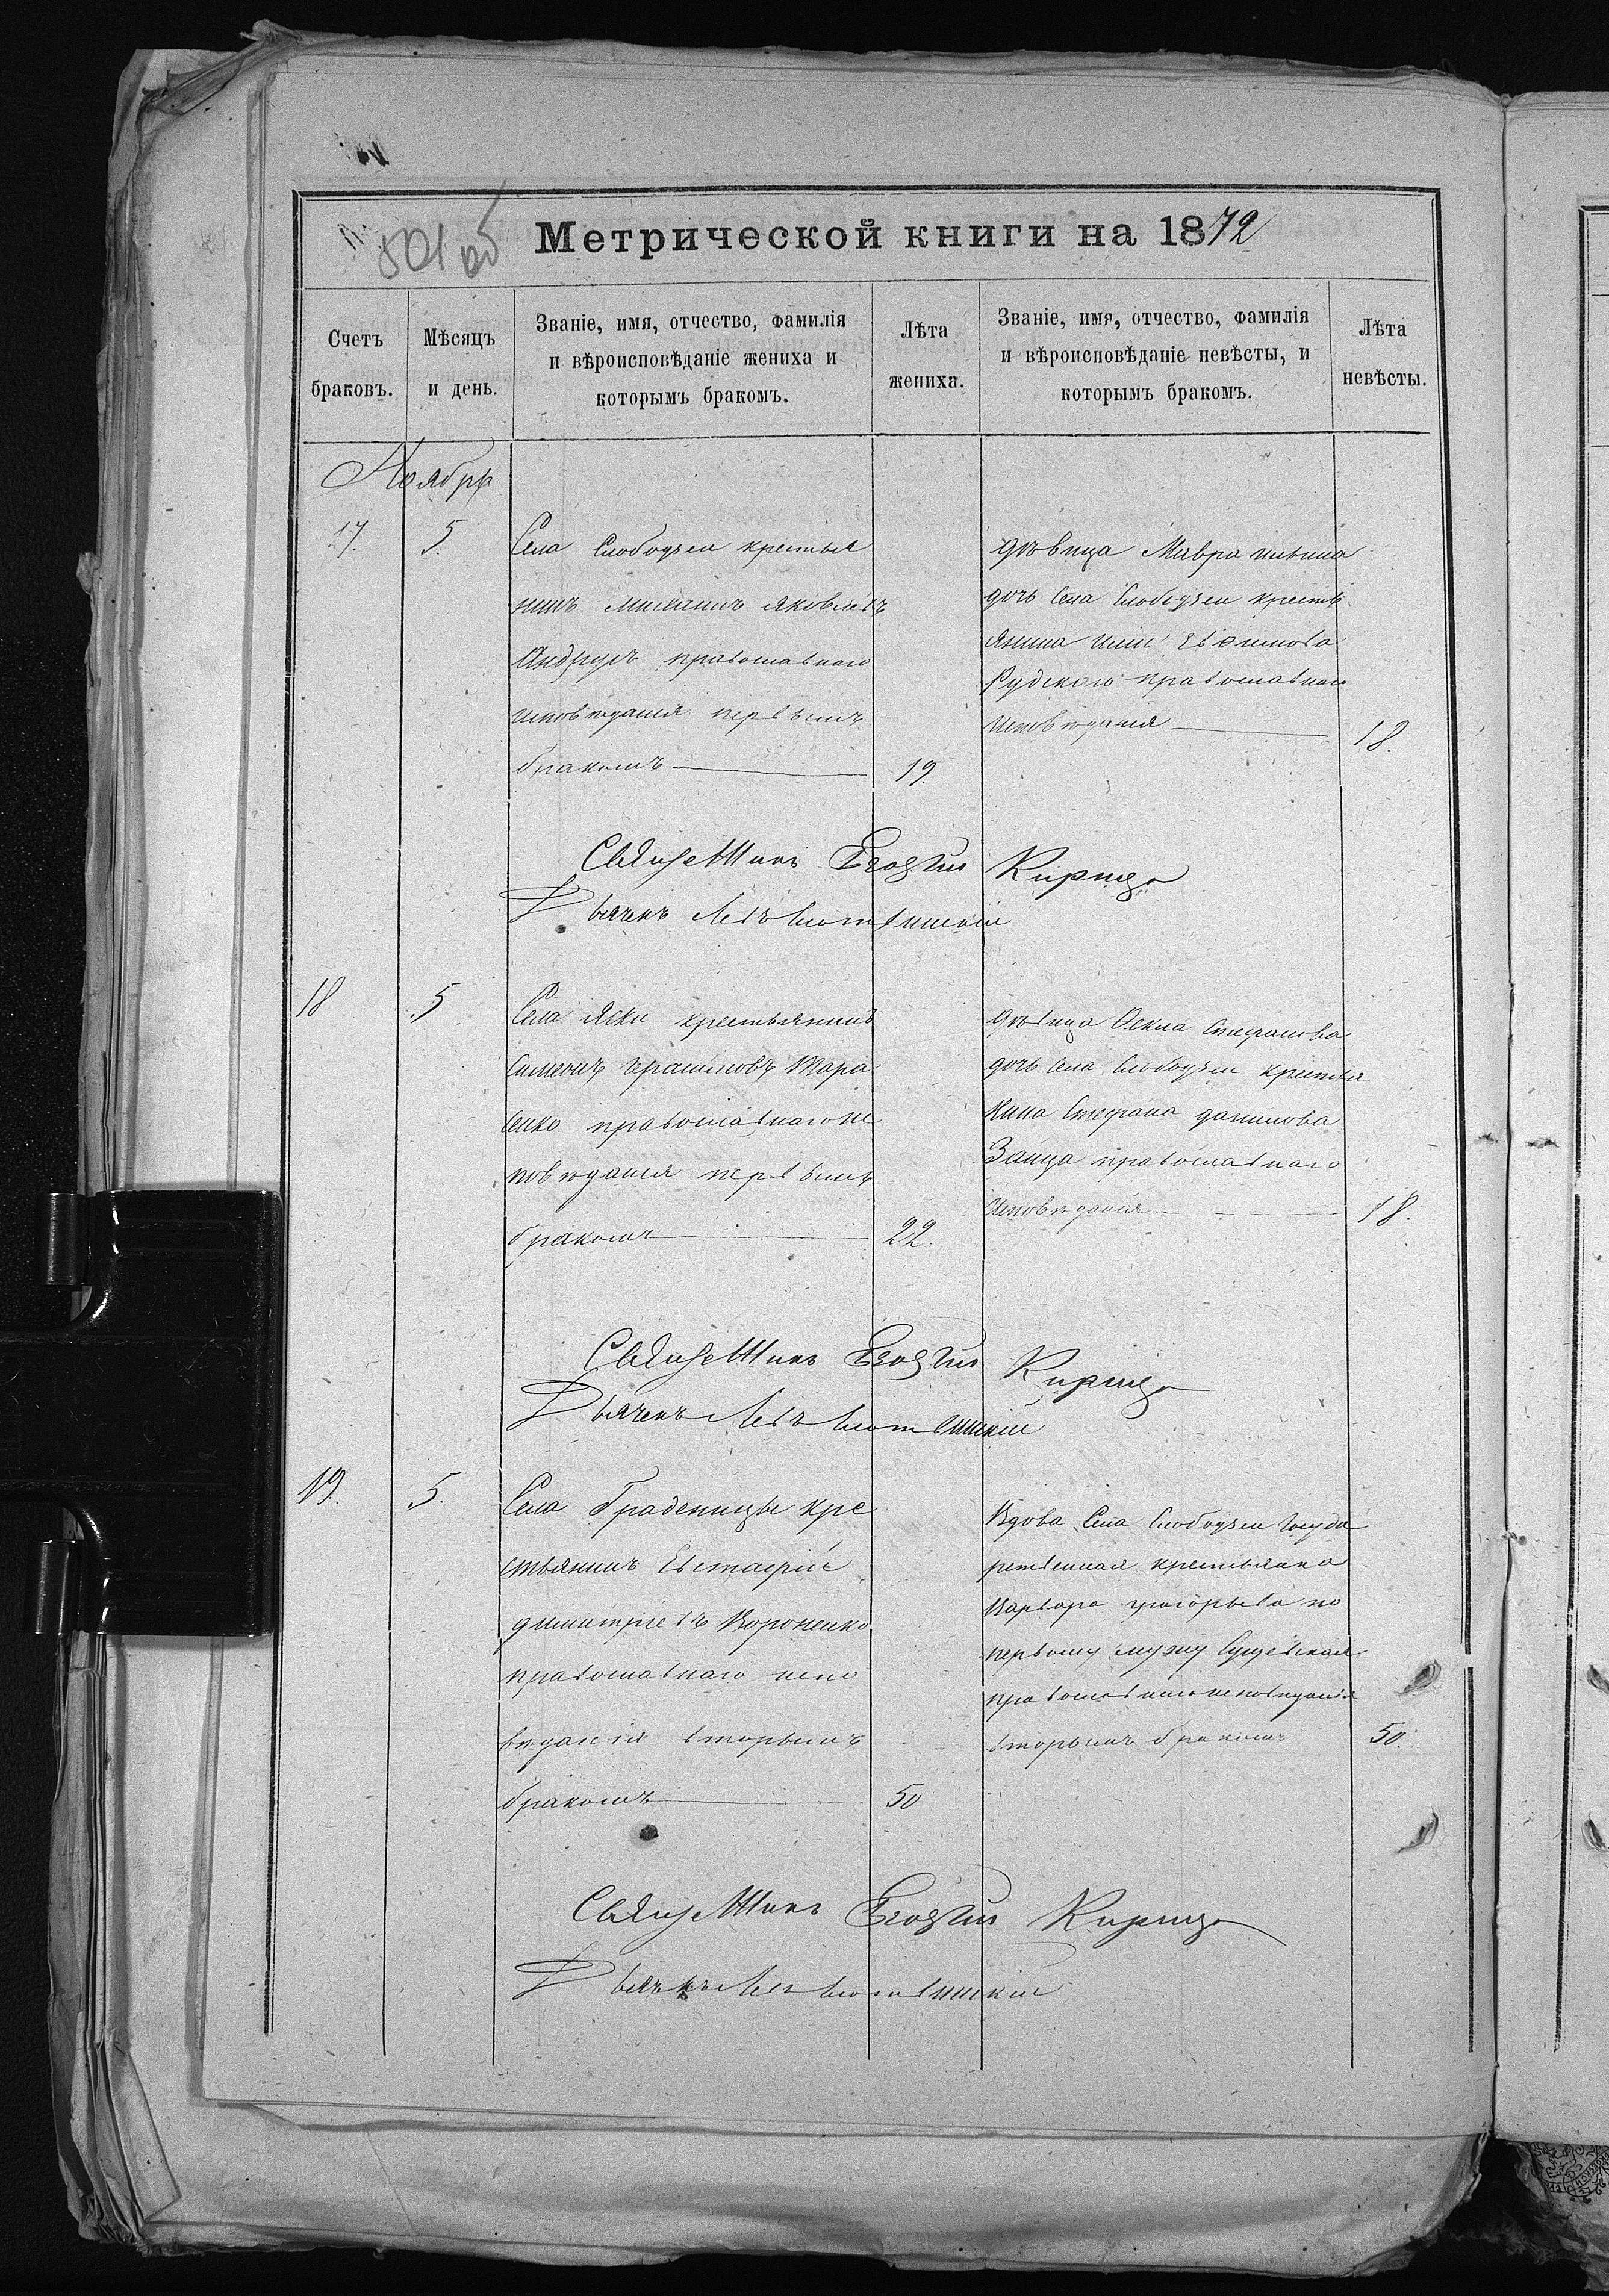 501 об
Метрической книги на 1872
Счетъ браковъ.
Мѣсяцъ и день.
Званіе, имя, отчество, фамилія
и вѣроисповѣданіе жениха и
которымъ бракомъ.
Лѣта жениха.
Званіе, имя, отчество, фамилія
и вѣроисповѣданіе невѣсты, и
которымъ бракомъ.
Лѣта невѣсты.
Ноябрь
17. 5.
Села Слободзеи крестья
нинъ Михаилъ Яковлевъ
Андрущ православнаго
исповѣданія первымъ
бракомъ 19.
дѣвица Мавра
дочь Села Слободзеи кресть
янина Ильи Евѳимова
Рудского православнаго
исповѣданія 18.
Священникъ Георгій Кирица
Дьячекъ Левъ
18 5
Села Яски крестьянинъ
Симеонъ Герасимовъ Тара
сенко православнаго ис
повѣданія первымъ
бракомъ 22.
дѣвица Ѳекла Стефанова
дочь Села Слободзеи крестья
нина Стефана Данилова
Заица православнаго
исповѣданія 18.
Священникъ Георгій Кирица
Дьячекъ Левъ
19. 5.
Села Граденицы кре
стьянинъ Евстафій
Димитріевъ Вороненко
православнаго испо
вѣданія вторымъ
бракомъ 50
Вдова Села Слободзеи Госуда
рственная крестьянка
Варвара Григорьева по
первому мужу
православнаго исповѣданія
вторымъ бракомъ 50.
Священникъ Георгій Кирица
Дьячекъ Левъ